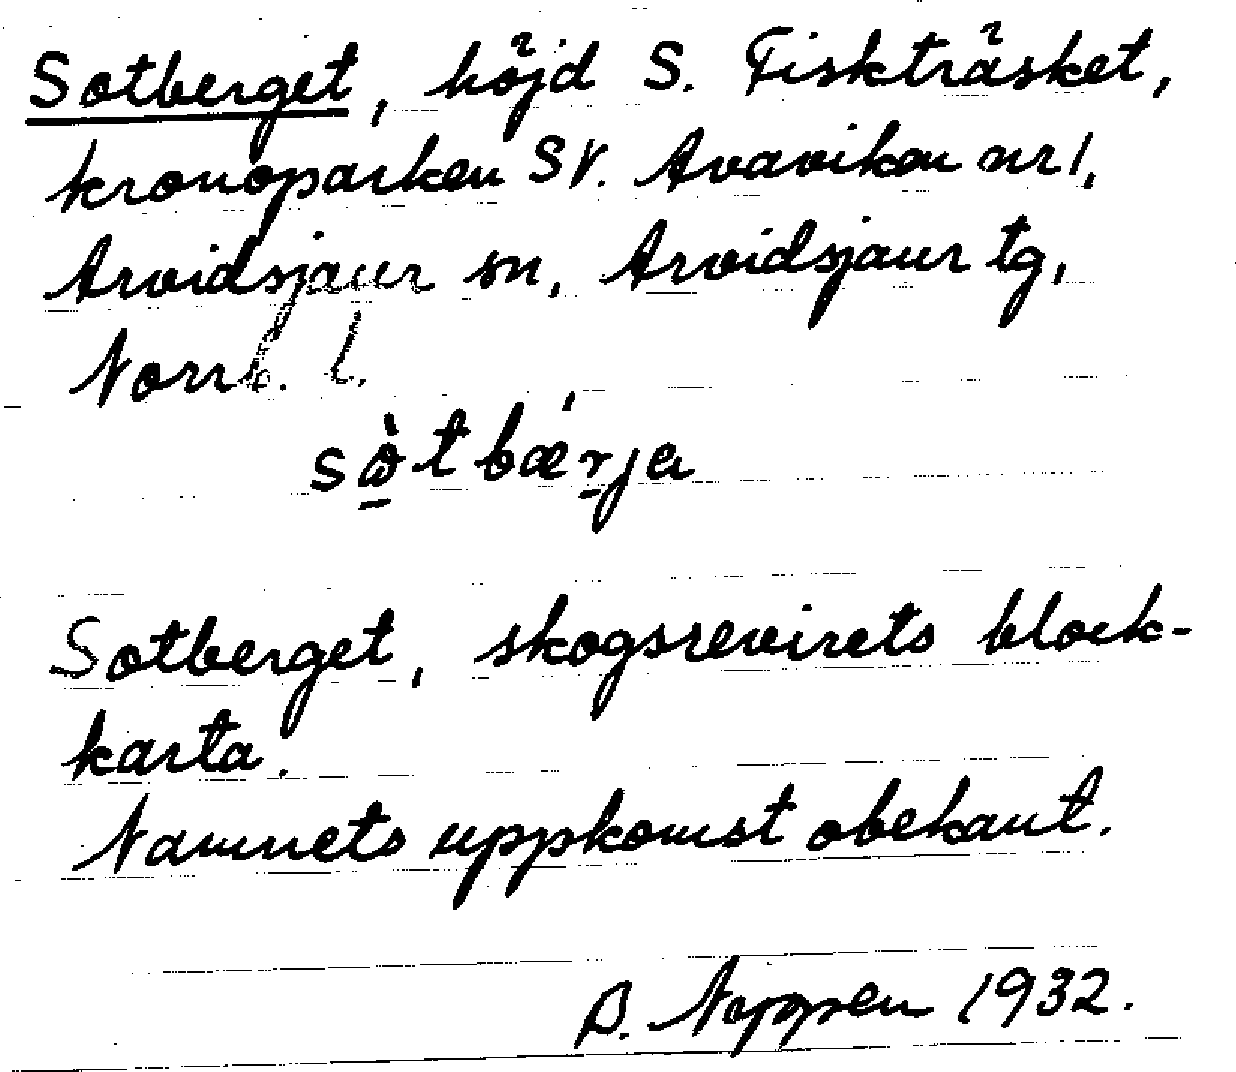 Sotberget, höjd S. Fiskträsket,
kronoparken SV. Avaviken nr 1,
Arvidsjaur sn, Arvidsjaur tg,
Norrb. l.
Sotberget, skogsrevirets block-
karta.
Namnets uppkomst obekant.
1932.